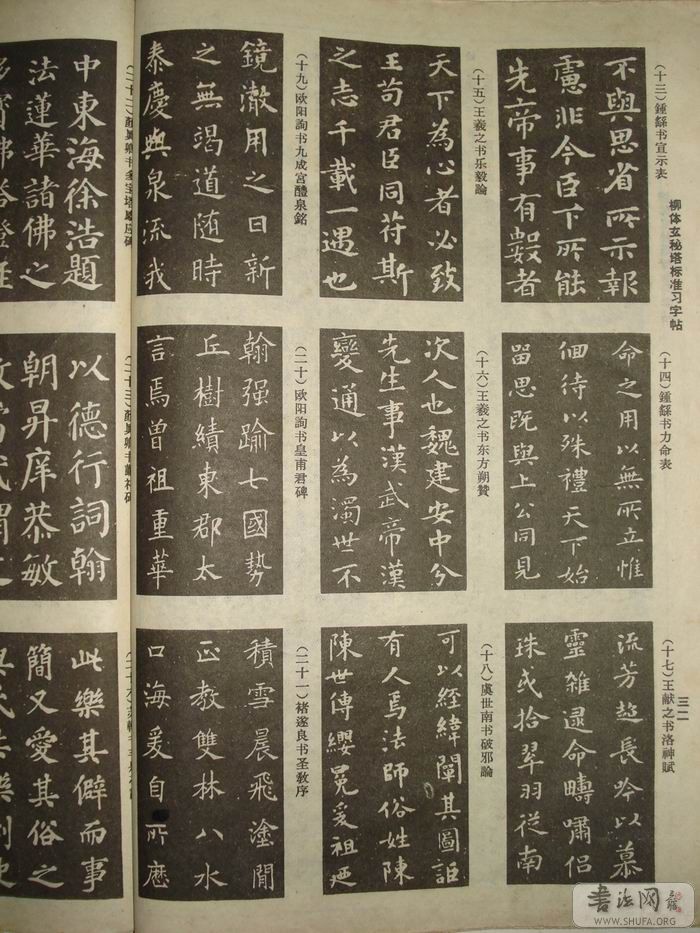 柳体玄秘塔标准习字帖
三二
(十三)鍾繇书宣示表
不與思省所示報
慮非今臣下所能
先帝事有數者
(十四)鍾繇书力命表
命之用以無所立惟
佪待以殊禮天下始
留思既與上公同見
(十五)王羲之书乐毅論
天下為心者必致
王苟君臣同符斯
之志千載一遇也
(十六)王羲之书东方朔贊
次人也魏建安中分
先生事漢武帝漢
變通以為濁世不
(十七)王献之书洛神賦
流芳越長吟以慕
靈雜遝命疇嘯侣
珠或拾翠羽從南
(十八)虞世南书破邪論
可以經緯闡其圖詎
有人焉法師俗姓陳
陳世傳纓冕爰祖
(十九)欧阳詢书九成宮醴泉銘
鏡澈用之日新
之無竭道随時
泰慶與泉流我
(二十)欧阳詢书皇甫君碑
翰强踰七國勢
丘樹績東郡太
言焉曾祖重華
(二十一)褚遂良书圣教序
積雪晨飛塗閒
正教雙林八水
口海爰自所歷
(二十二)顏真卿书多宝塔感应碑
中東海徐浩題
法蓮華諸佛之
(二十三)
以德行詞翰
朝昇庠恭敏
此樂其僻而事
簡又愛其俗之
书法网
WWW.SHUFA.ORG